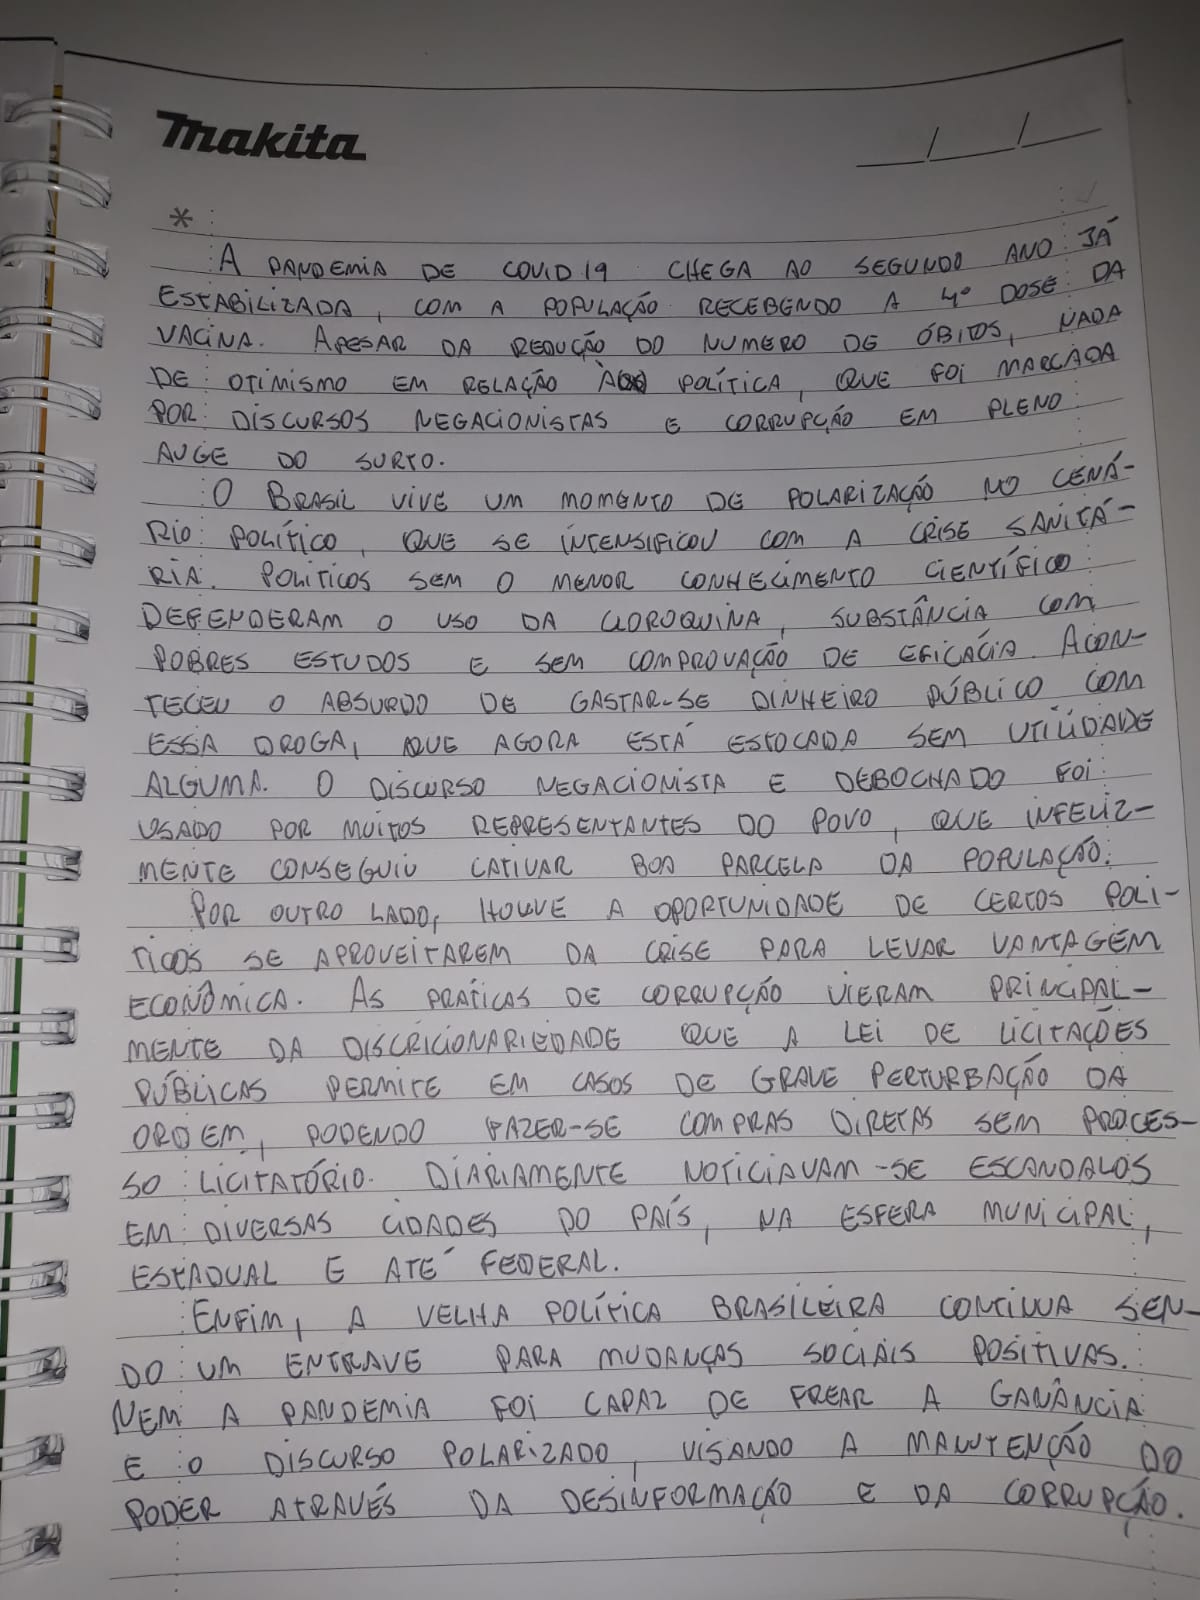 Makita
__/__/__
*
A PANDEMIA DE COVID19 CHEGA AO SEGUNDO ANO JÁ
ESTABILIZADA, COM A POPULAÇÃO RECEBENDO A 4º DOSE DA
VACINA. APESAR DA REDUÇÃO DO NUMERO DE ÓBITOS, NADA
DE OTIMISMO EM RELAÇÃO À POLÍTICA, QUE FOI MARCADA
POR DISCURSOS NEGACIONISTAS E CORRUPÇÃO EM PLENO
AUGE DO SURTO.
O BRASIL VIVE UM MOMENTO DE POLARIZAÇÃO NO CENÁ-
RIO POLÍTICO, QUE SE INTENSIFICOU COM A CRISE SANITÁ-
RIA. POLITICOS SEM O MENOR CONHECIMENTO CIENTÍFICO
DEFENDERAM O USO DA CLOROQUINA, SUBSTÂNCIA COM
POBRES ESTUDOS E SEM COMPROVAÇÃO DE EFICÁCIA. ACON-
TECEU O ABSURDO DE GASTAR-SE DINHEIRO PÚBLICO COM
ESSA DROGA, QUE AGORA ESTÁ ESTOCADA SEM UTILIDADE
ALGUMA. O DISCURSO NEGACIONISTA E DEBOCHADO FOI
USADO POR MUITOS REPRESENTANTES DO POVO, QUE INFELIZ-
MENTE CONSEGUIU CATIVAR BOA PARCELA DA POPULAÇÃO.
POR OUTRO LADO, HOUVE A OPORTUNIDADE DE CERTOS POLI-
TICOS SE APROVEITAREM DA CRISE PARA LEVAR VANTAGEM
ECONÔMICA. AS PRÁTICAS DE CORRUPÇÃO VIERAM PRINCIPAL-
MENTE DA DISCRICIONARIEDADE QUE A LEI DE LICITAÇÕES
PÚBLICAS PERMITE EM CASOS DE GRAVE PERTURBAÇÃO DA
ORDEM, PODENDO FAZER-SE COMPRAS DIRETAS SEM PROCES-
SO LICITATÓRIO. DIARIAMENTE NOTICIAVAM-SE ESCANDALOS
EM DIVERSAS CIDADES DO PAÍS, NA ESFERA MUNICIPAL,
ESTADUAL E ATÉ FEDERAL.
ENFIM, A VELHA POLÍTICA BRASILEIRA CONTINUA SEN-
DO UM ENTRAVE PARA MUDANÇAS SOCIAIS POSITIVAS.
NEM A PANDEMIA FOI CAPAZ DE FREAR A GANÂNCIA
E O DISCURSO POLARIZADO, VISANDO A MANUTENÇÃO DO
PODER ATRAVÉS DA DESINFORMAÇÃO E DA CORRUPÇÃO.